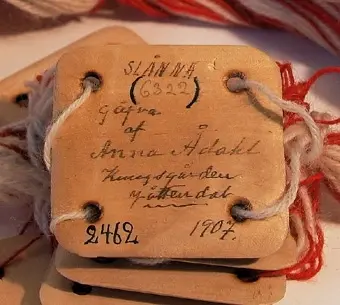 SLÅNNA
(6322)
gåfva
af
Anna Ådahl
Kungsgården
Yttendal
2462 1907.